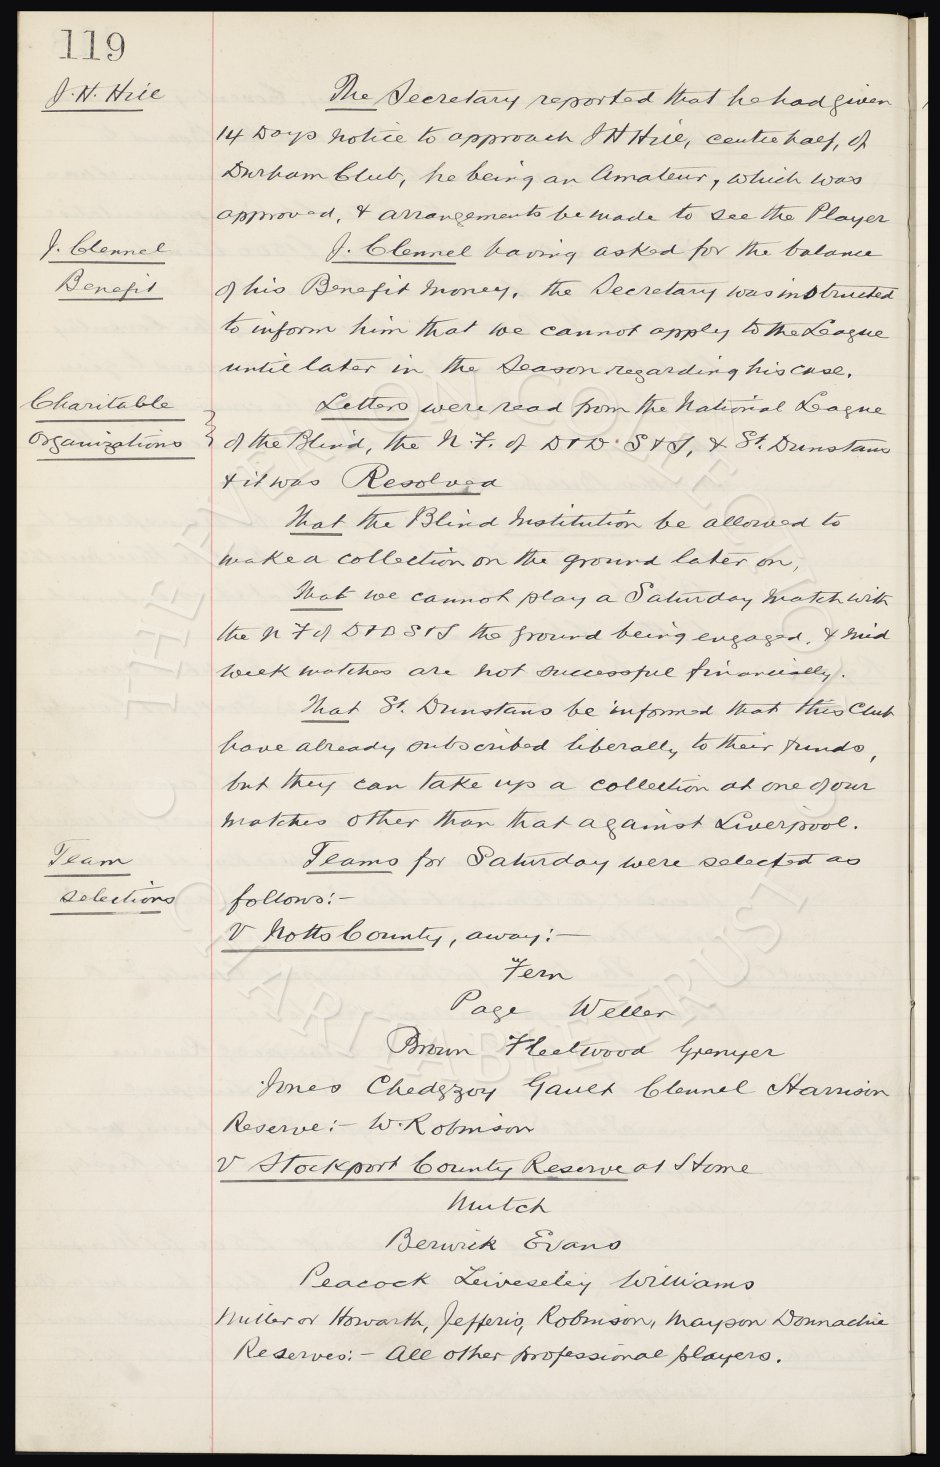 119
J. H. Hill
The Secretary reported that he had given
14 Days notice to approach J H Hill, centre half, of
Durham Club, he being an Amateur, which was
approved, & arrangements be made to see the Player
J. Clennel
Benefit
J. Clennel having asked for the balance
of his Benefit Money, the Secretary was instructed
to inform him that we cannot apply to the League
until later in the Season regarding his case.
Charitable
Organizations
Letters were read from the National League
of the Blind, the N. F. of D & D. S & S, & St. Dunstans
& it was Resolved
That the Blind Institution be allowed to
make a collection on the ground later on,
That we cannot play a Saturday Match with
the N F of D & D S & S the ground being engaged, & mid
week matches are not successful financially.
That St. Dunstans be informed that this Club
have already subscribed liberally to their funds,
but they can take up a collection at one of our
matches other than that against Liverpool.
Team
selections
Teams for Saturday were selected as
follows:-
V Notts County, away:-
Fern
Page Weller
Brown Fleetwood Grenyer
Jones Chedgzoy Gault Clennel Harrison
Reserve:- W. Robinson
V Stockport County Reserve at Home
Mutch
Berwick Evans
Peacock Leivesley Williams
Miller or Howarth, Jefferis, Robinson, Mayson Donnachie
Reserves:- All other professional players.
THE EVERTON COLLECTION
CHARITABLE TRUST